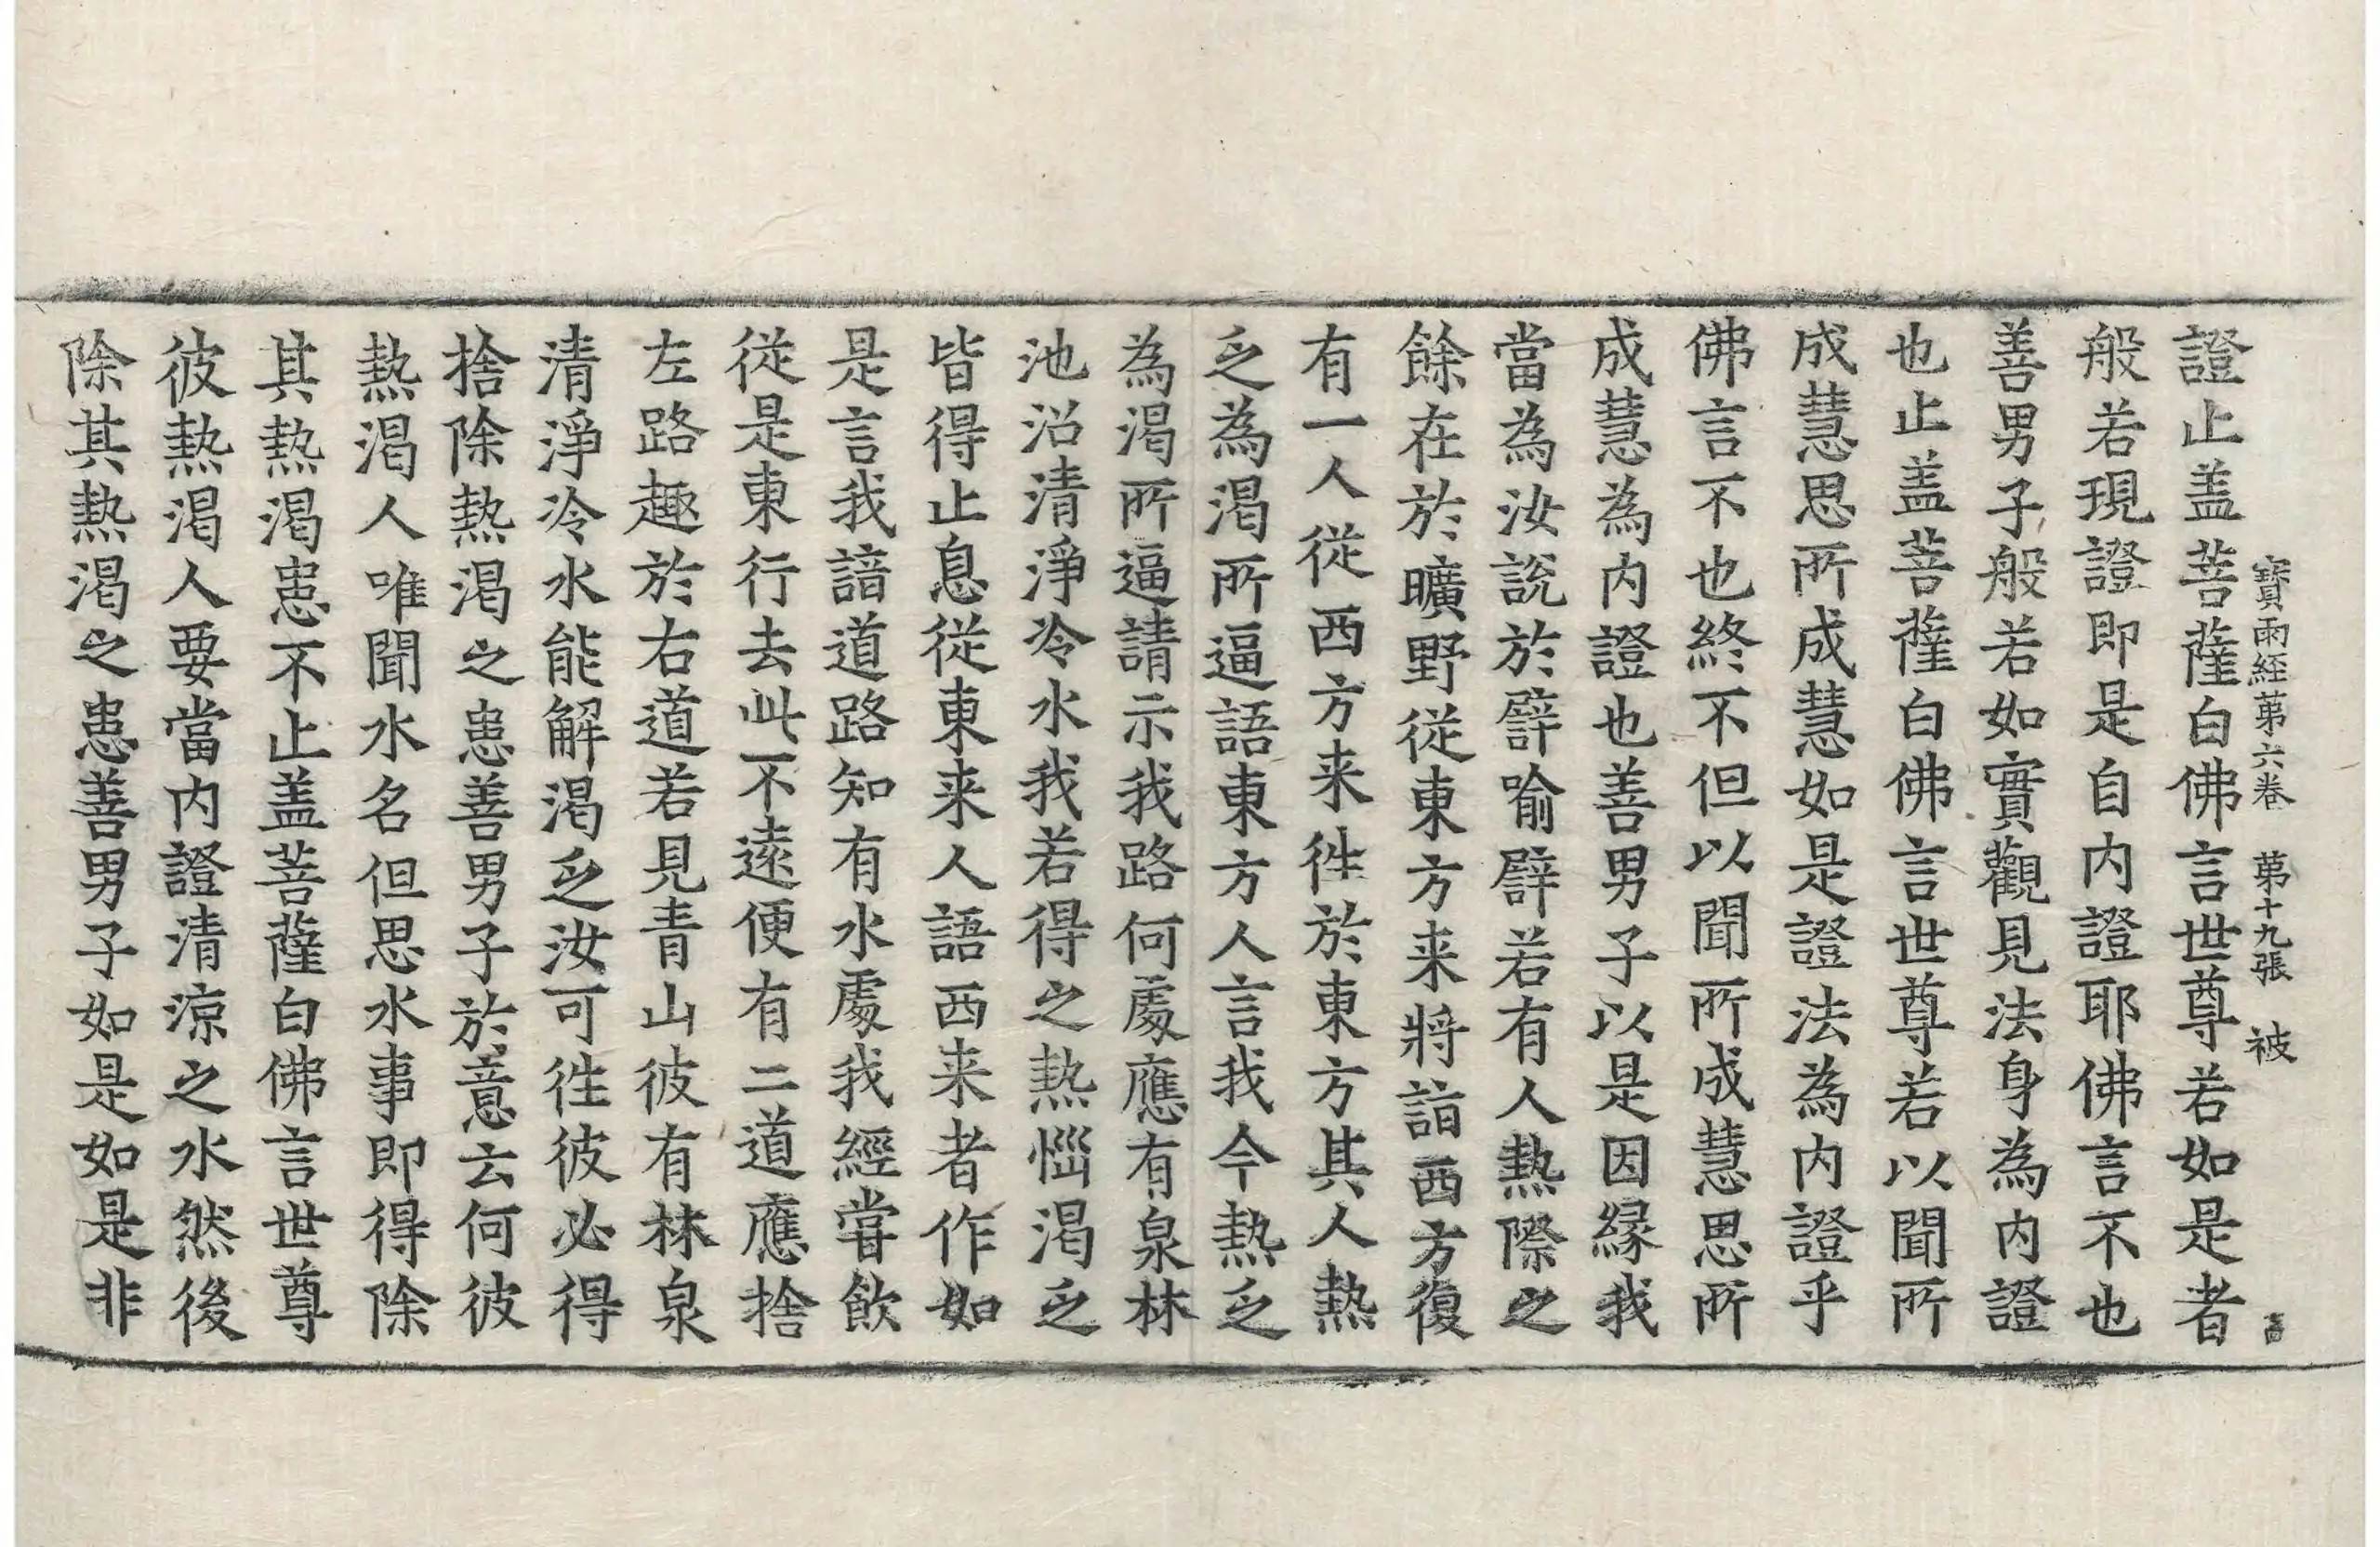 寶雨經苐六卷 苐十九張 被
證止盖菩薩白佛言世尊若如是者
般若現證即是自内證耶佛言不也
善男子般若如實觀見法身為内證
也止盖菩薩白佛言世尊若以聞所
成慧思所成慧如是證法為内證乎
佛言不也終不但以聞所成慧思所
成慧為内證也善男子以是因縁我
當為汝說於譬喻譬若有人熱際之
餘在於曠野從東方来將詣西方復
有一人從西方来徃於東方其人熱
乏為渴所逼語東方人言我今熱乏
為渴所逼請示我路何處應有泉林
池沼清淨冷水我若得之熱惱渴乏
皆得止息從東来人語西来者作如
是言我諳道路知有水處我經甞飲
從是東行去此不遠便有二道應捨
左路趣於右道若見青山彼有林泉
清淨冷水能解渴乏汝可徃彼必得
捨除熱渴之患善男子於意云何彼
熱渴人唯聞水名但思水事即得除
其熱渴患不止盖菩薩白佛言世尊
彼熱渴人要當内證清涼之水然後
除其熱渴之患善男子如是如是非